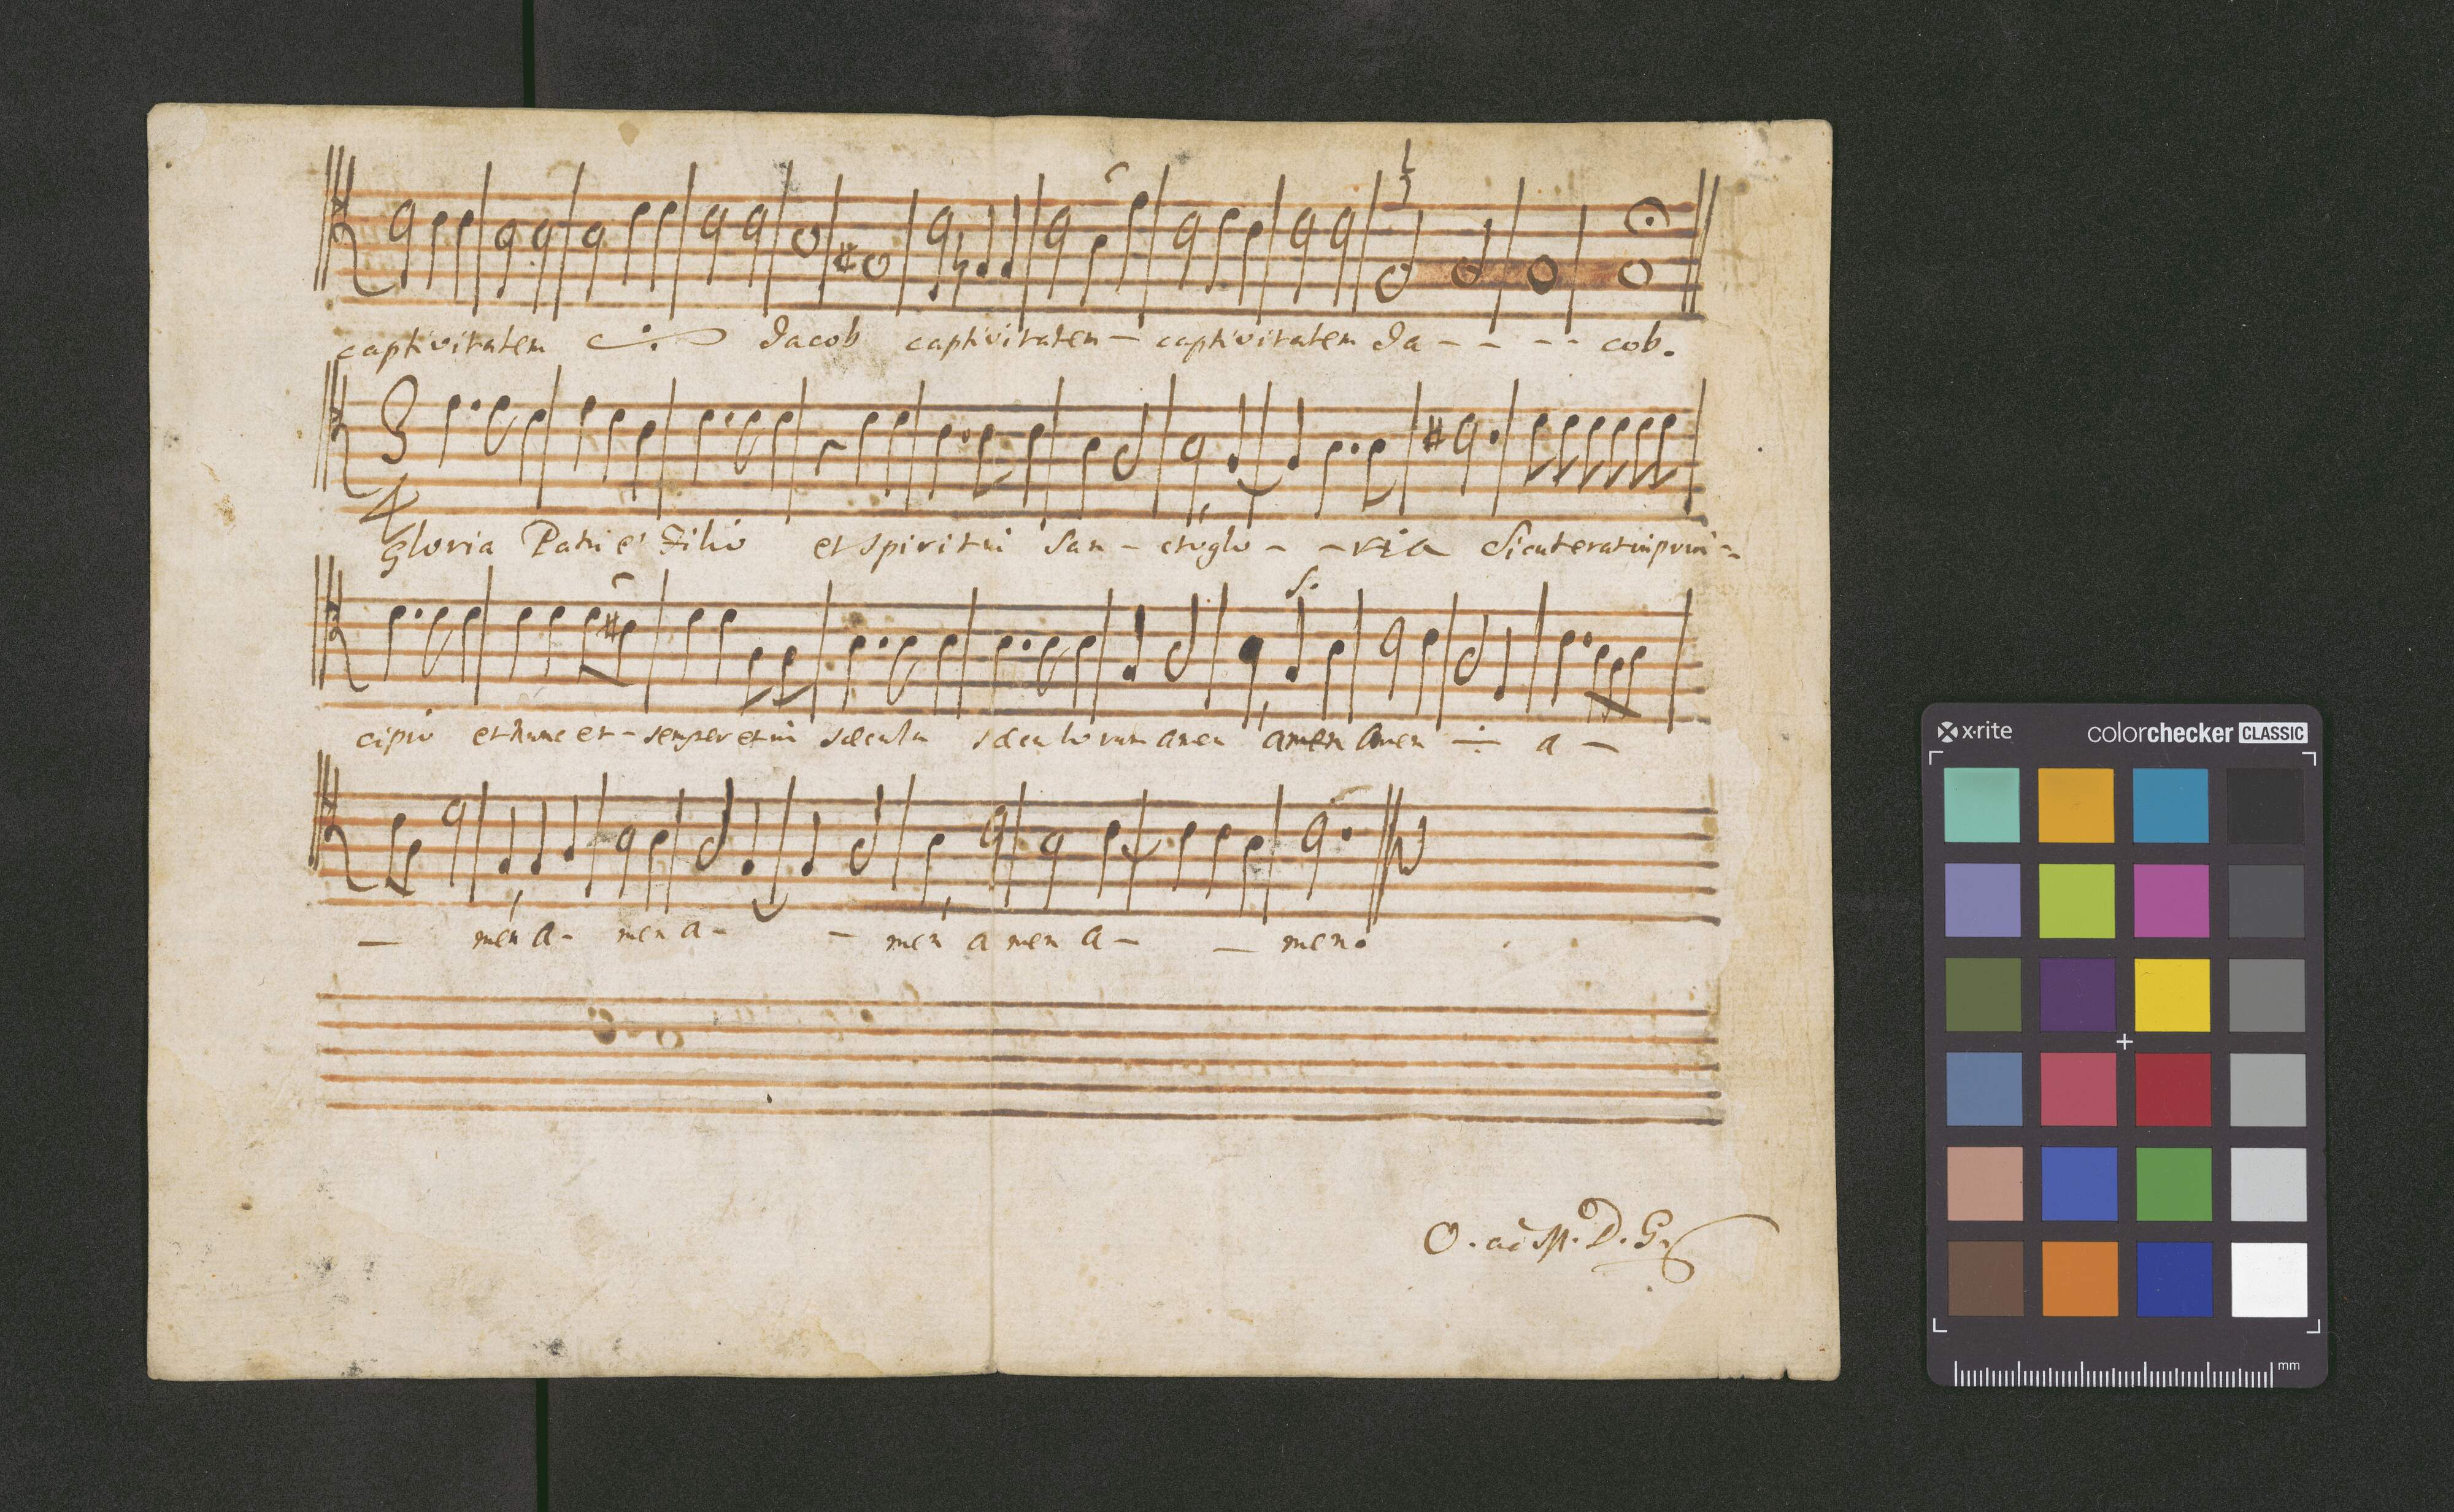 captivitatem Jacob captivitatem - captivitatem Ja - - - - cob.
3
4
Gloria Patri et Filio et spiritui San - cto glo - - ria Sicut erat in prin -
S.
cipio et nunc et - semper et in sæcula sæculorum amen amen Amen a -
- men a - men a - - men a men a - - men.
O. ad M. D. G.
x·rite colorchecker CLASSIC
mm